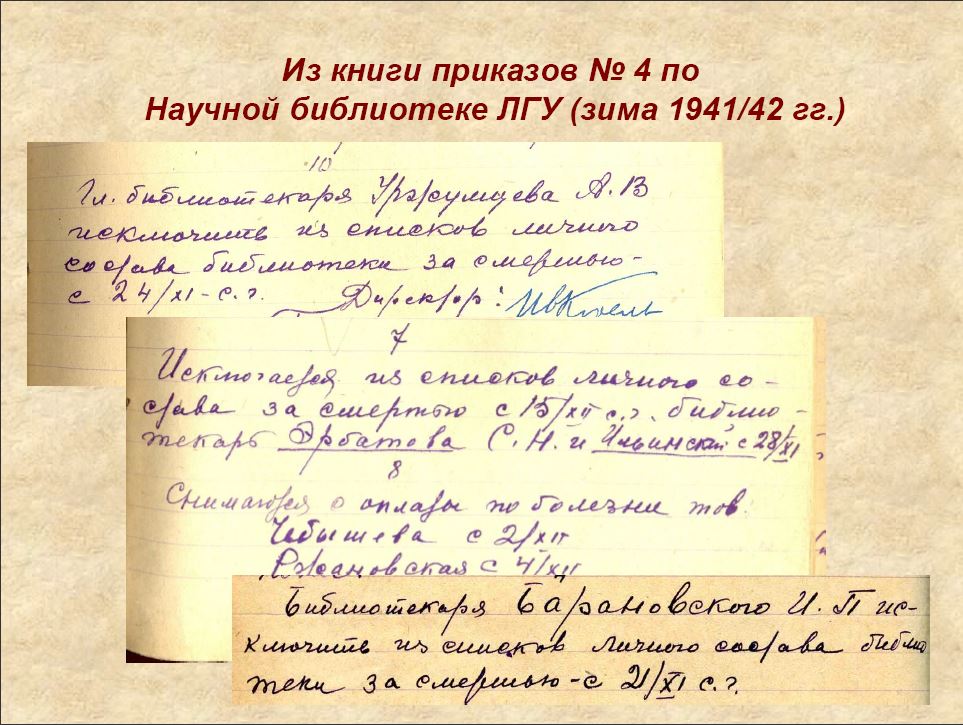 Из книги приказов № 4 по
Научной библиотеке ЛГУ (зима 1941/42 гг.)
10
Гл. библиотекаря Уржумцева А. В
исключить из списков личного
состава библиотеки за смертью –
с 24/XI - с. г. Директор:
7
Исключается из списков личного со-
става за смертью с 15/XII с. г. библио-
текарь Эрбатова С. Н. и Ильинский с 28/XI
8
Снимаются с оплаты по болезни тов.
Чебышева с 2/XII
Ржановская с 4/XII
Библиотекаря Барановского И. П ис-
ключить из списков личного состава библио
теки за смертью – с 21/XI с. г.